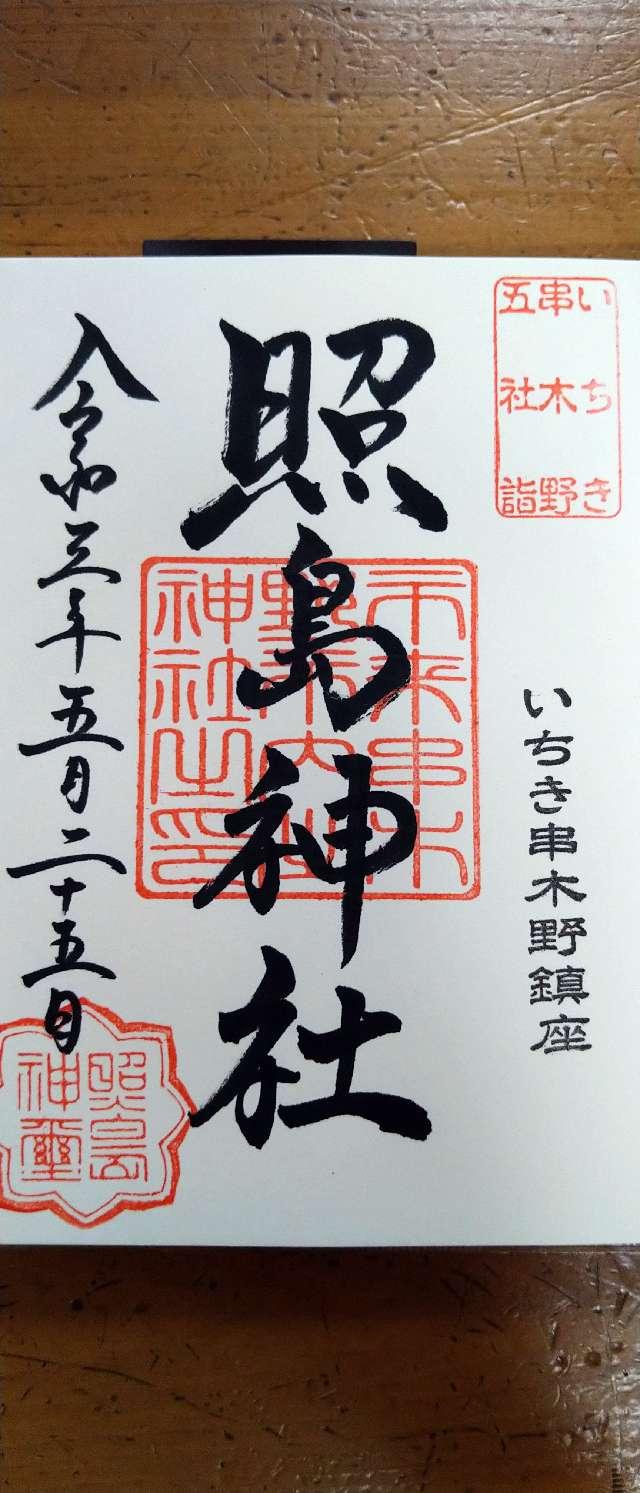 いちき
串木野
五社詣
いちき串木野鎮座
照島神社
神社之印
令和三年五月二十五日
照島
神璽